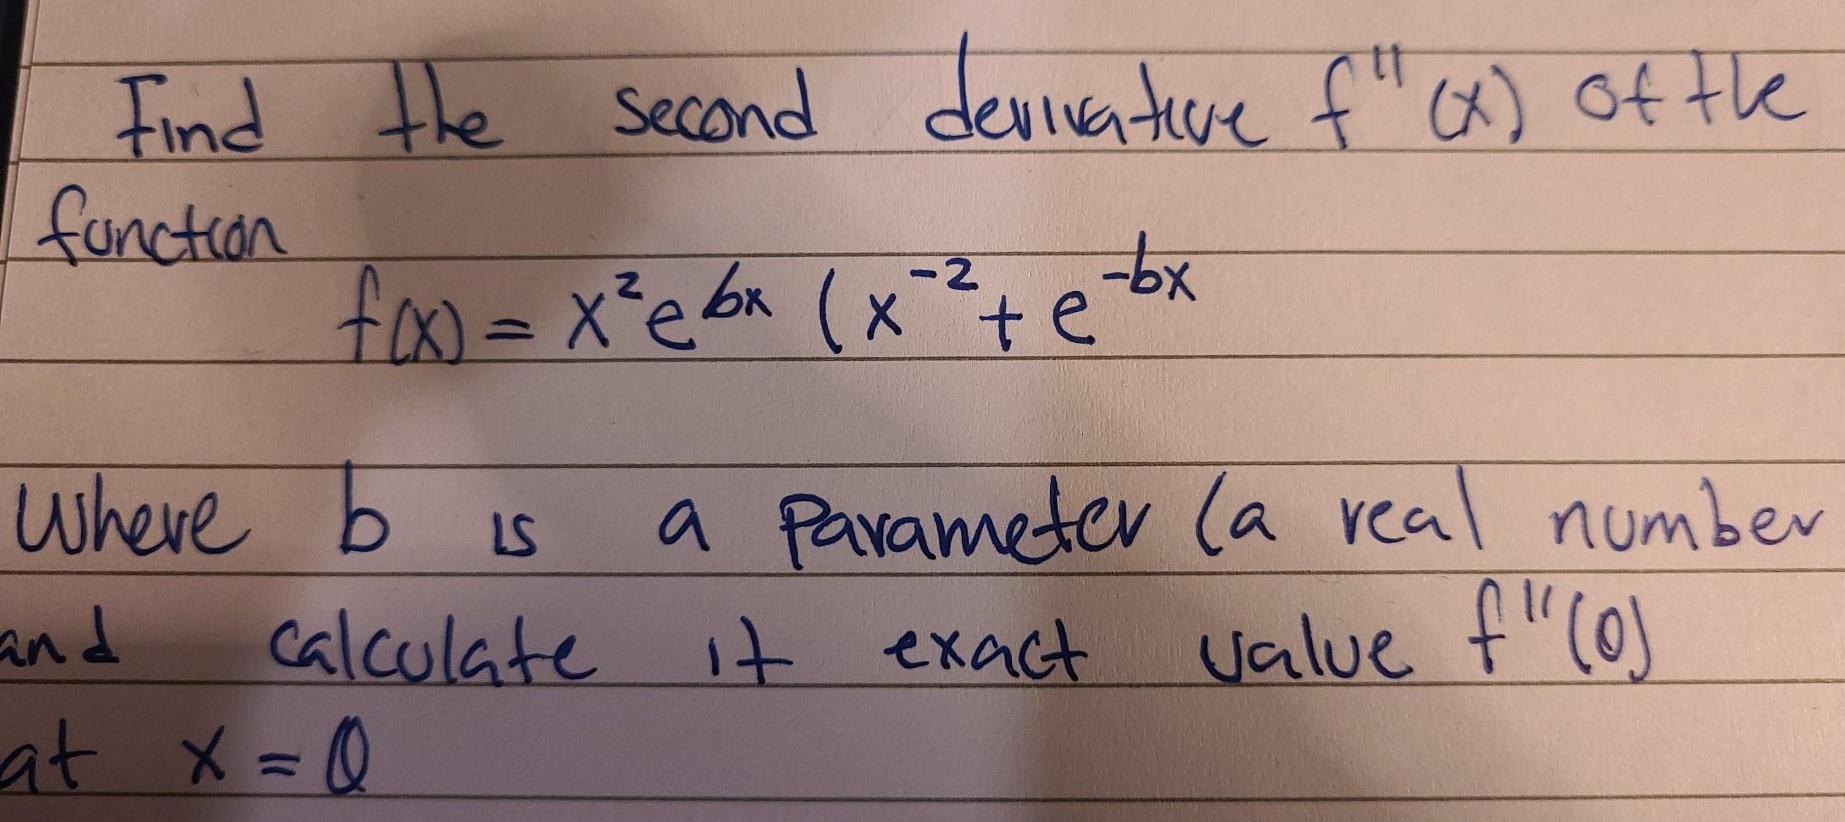 Find the second derivative f"(x) of the
function
f(x) = x²e^bx (x^-2 + e^-bx
Where b is a Parameter (a real number
and calculate it exact value f"(0)
at x = 0